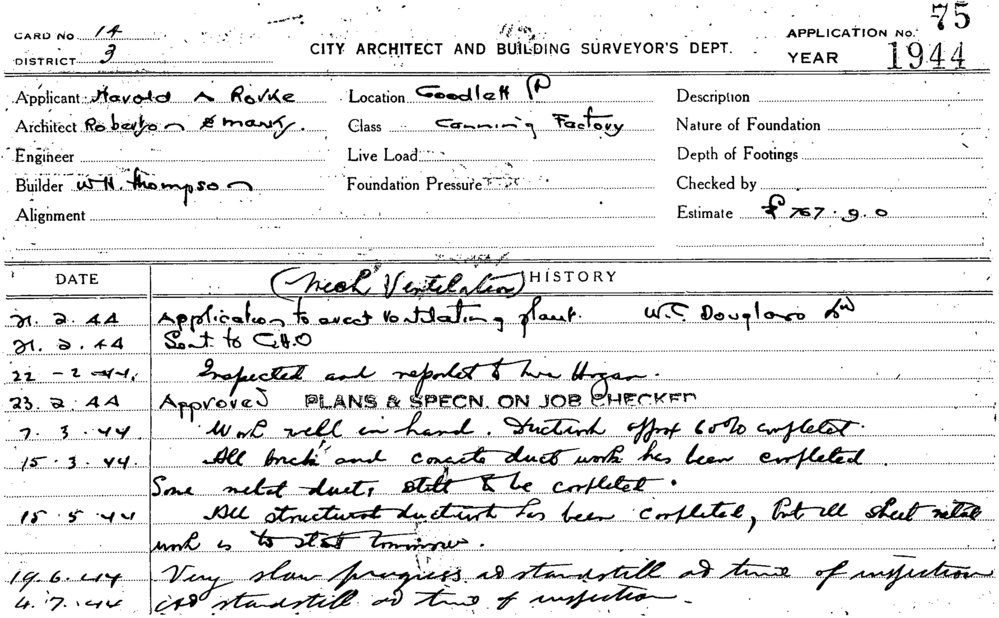 75
CARD No 14
APPLICATION No.
DISTRICT 3
CITY ARCHITECT AND BUILDING SURVEYOR'S DEPT.
YEAR 1944
Applicant Harold A Rorke
Location Goodlett
Description
Architect Robertson & Marks.
Class Canning Factory
Nature of Foundation
Engineer
Live Load
Depth of Footings
Builder W.H. Thompson
Foundation Pressure
Checked by
Alignment
Estimate £ 767.9.0
DATE
(Mech Ventilation) HISTORY
21.2.44 Application to erect ventilating plant. W.E. Douglass
21.2.44 Sent to C.H.O
22-2-44. Inspected and reported to Hogan.
23.2.44 Approved PLANS & SPECN. ON JOB CHECKED
7.3.44 Work well in hand. Ductwork approx 60% completed.
15.3.44. All brick and concrete duct work has been completed.
Some metal ducts still to be completed.
15.5.44 All structural ductwork has been completed, but all sheet metal
work is to start tomorrow.
19.6.44 Very slow progress at standstill at time of inspection
4.7.44 standstill at time of inspection.